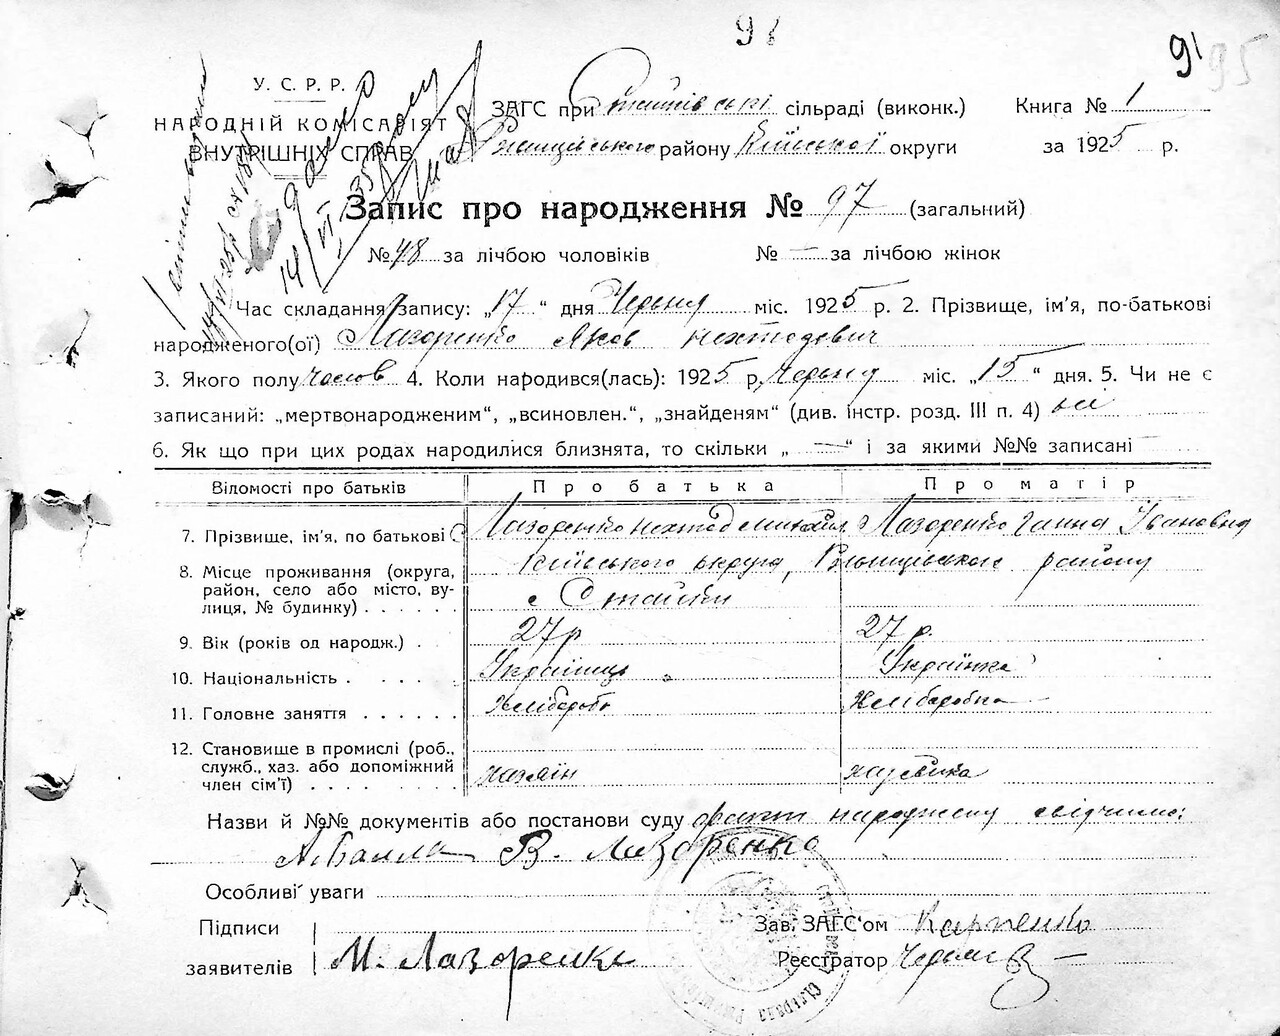 91
95
У. С. Р. Р.
НАРОДНІЙ КОМІСАРІЯТ
ВНУТРІШНІХ СПРАВ
ЗАГС при Стайківські сільраді (виконк.)
району Київської округи
Книга № 1
за 1925 р.
Запис про народження № 97 (загальний)
№ 48 за лічбою чоловіків № — за лічбою жінок
Час складання запису: „17“ дня Червня міс. 1925 р. 2. Прізвище, ім'я, по-батькові
народженого(ої) Лазоренко Яков
3. Якого полу чолов 4. Коли народився(лась): 1925 р. Червня міс. „15“ дня. 5. Чи не є
записаний: „мертвонародженим“, „всиновлен.“, „знайденям“ (див. інстр. розд. III п. 4) ні
6. Як що при цих родах народилися близнята, то скільки „—“ і за якими №№ записані
Відомості про батьків Про батька Про матір
7. Прізвище, ім'я, по батькові Лазоренко Лазоренко Ганна Івановна
8. Місце проживання (округа,
район, село або місто, вулиця, № будинку) Київського округа, району
с Стайки
9. Вік (років од народж.) 27 р 27 р.
10. Національність Українець Українка
11. Головне заняття Хлібороб Хліборобка
12. Становище в промислі (роб.,
служб., хаз. або допоміжний
член сім'ї) хазяїн хазяйка
Назви й №№ документів або постанови суду факт народження свідчимо:
В. Лазоренко
Особливі уваги
Підписи
заявителів М. Лазоренко
Зав. ЗАГС'ом Карпенко
Реєстратор